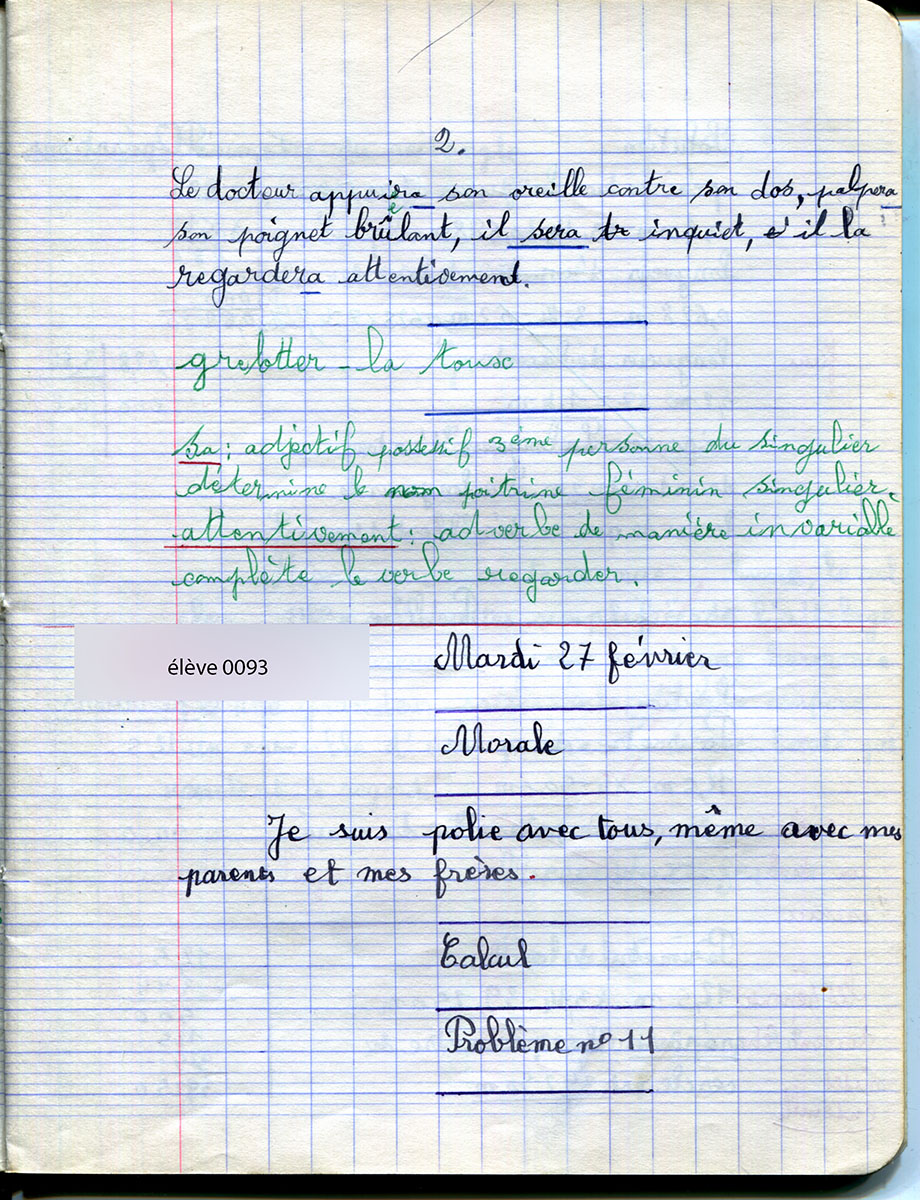 2.
Le docteur appuira son oreille contre son dos, palpera
son poignet brûlant, il sera inquiet, il la
regardera attentivement.
grelotter - la tousse
Sa : adjectif possessif 3ème personne du singulier
détermine le nom poitrine féminin singulier.
attentivement : adverbe de manière invariable
complète le verbe regarder.
élève 0093
Mardi 27 février
Morale
Je suis polie avec tous, même avec mes
parents et mes frères.
Calcul
Problème nº 11